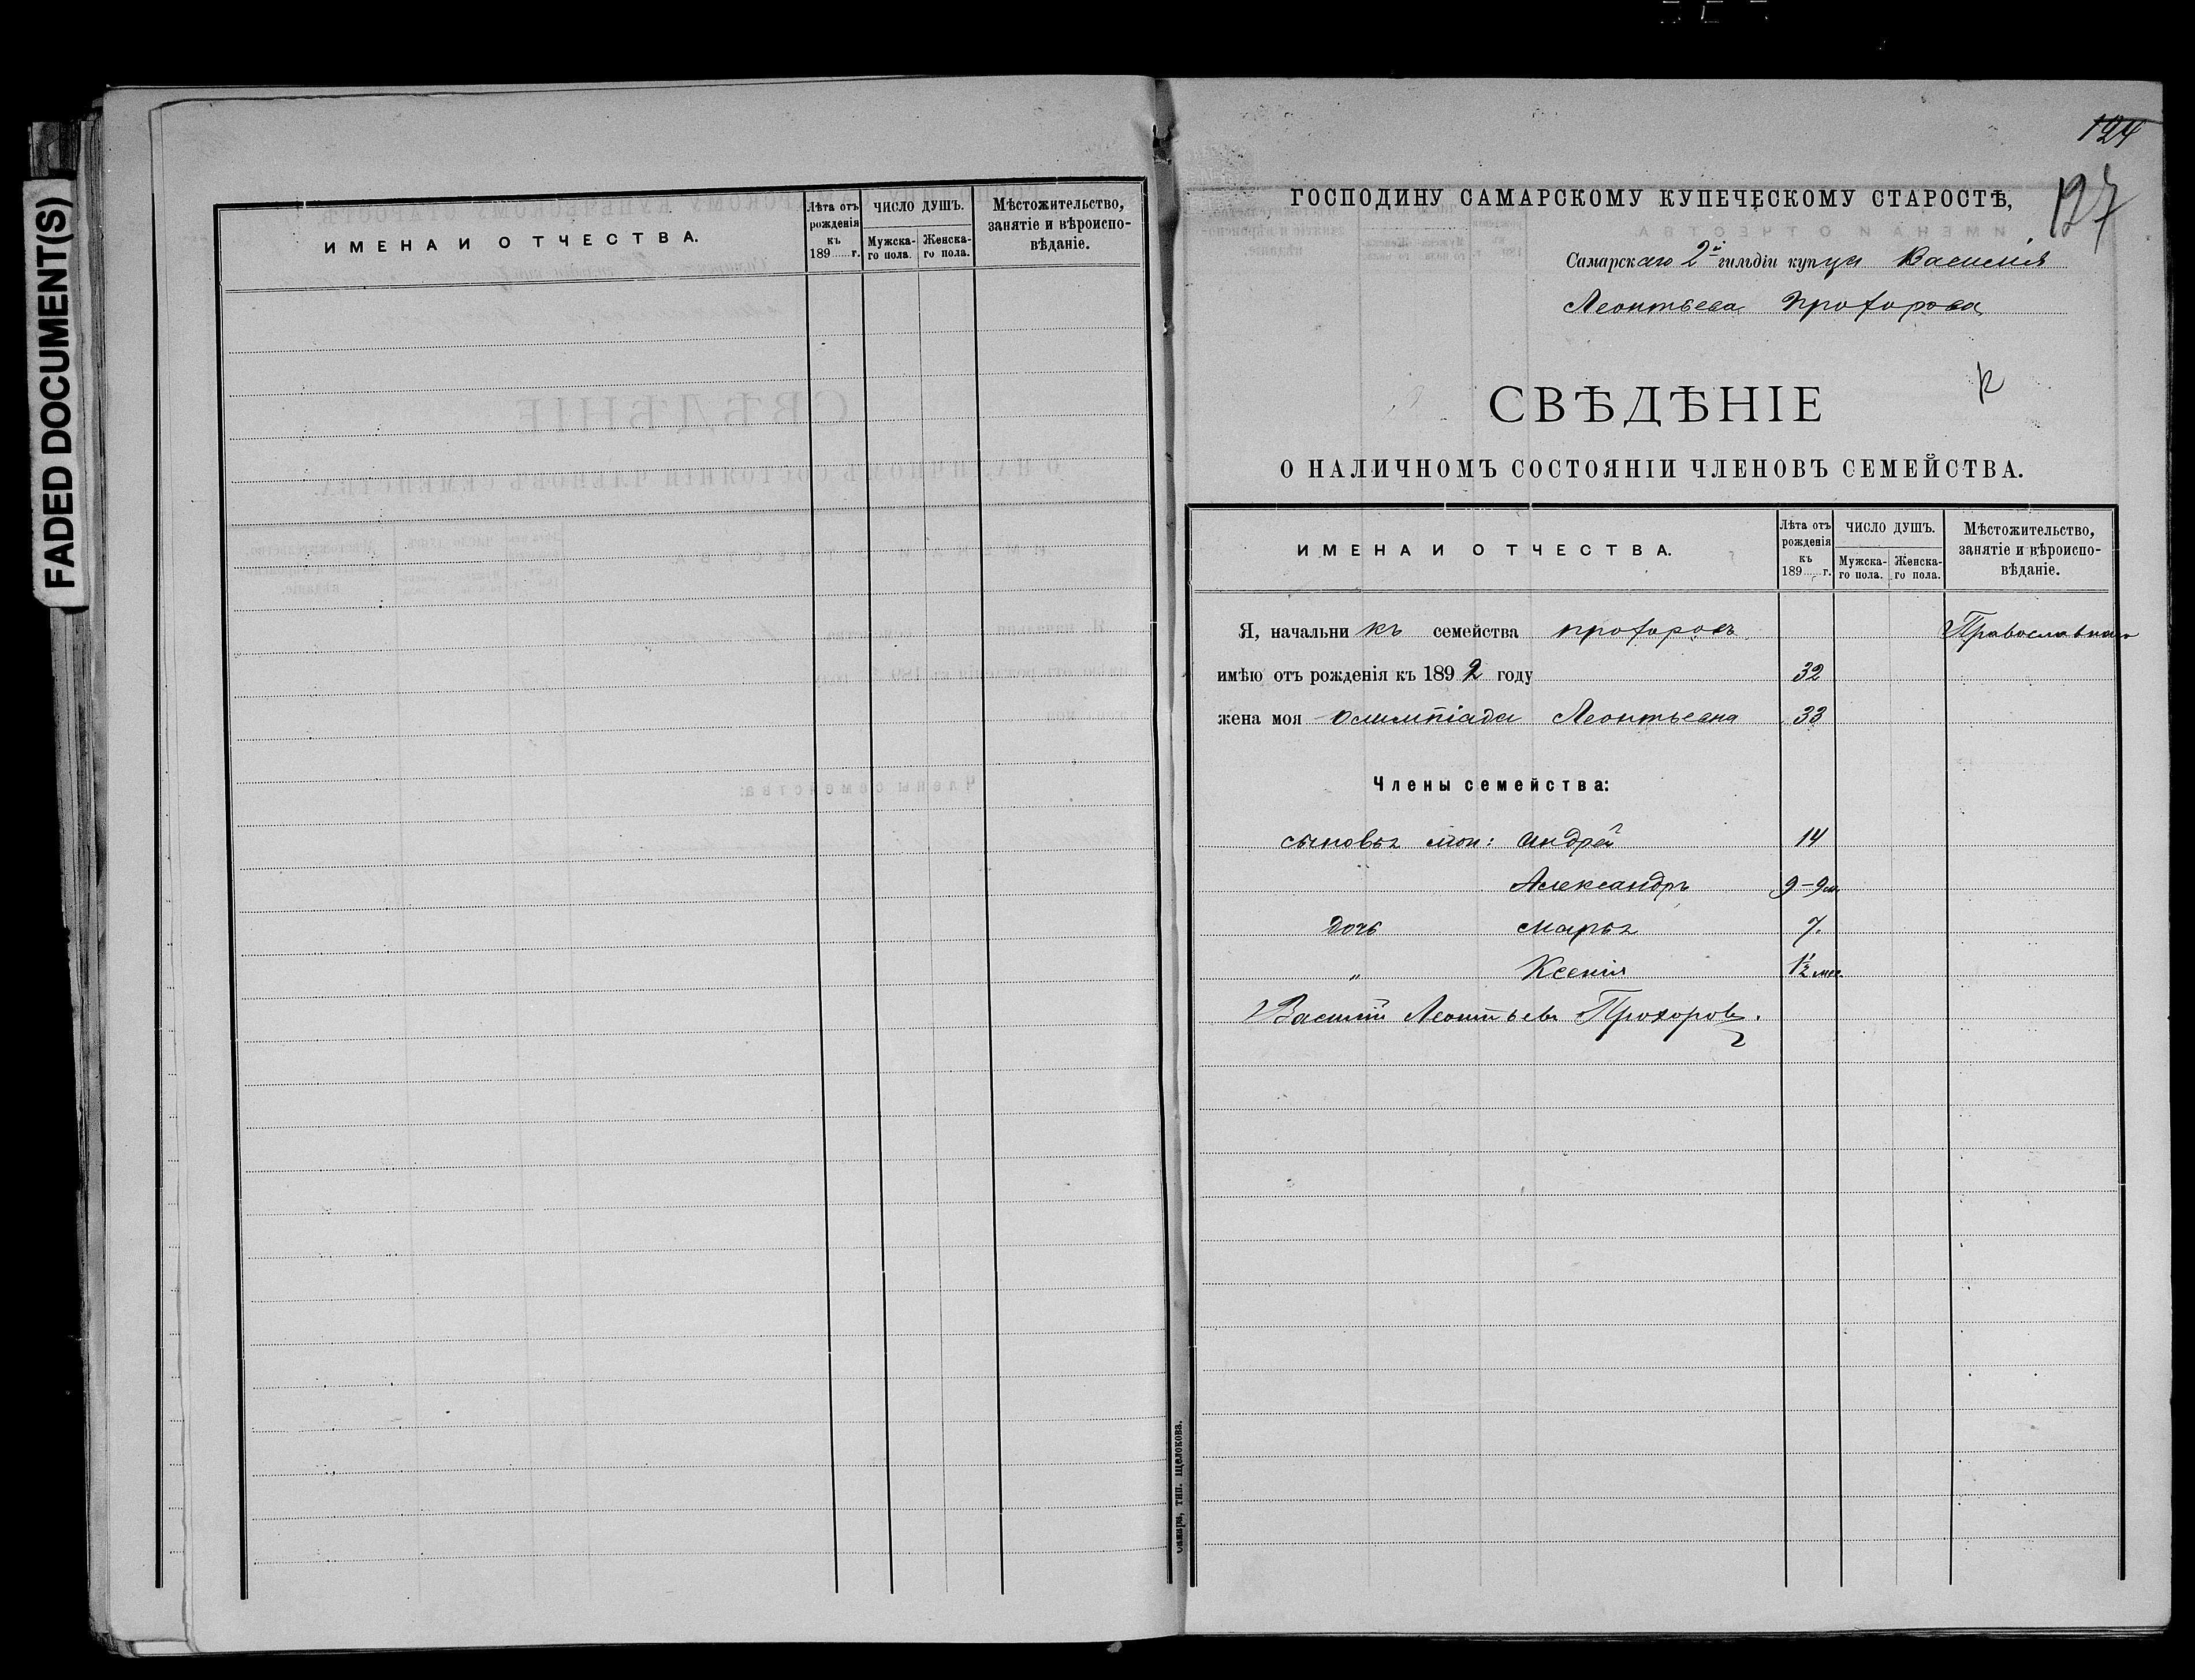 FADED DOCUMENT(S)
ИМЕНА И ОТЧЕСТВА.
Лѣта отъ рожденія къ 189 г.
ЧИСЛО ДУШЪ.
Мужска-го пола.
Женска-го пола.
Мѣстожительство, занятіе и вѣроиспо-вѣданіе.
124
127
ГОСПОДИНУ САМАРСКОМУ КУПЕЧЕСКОМУ СТАРОСТѢ,
Самарскаго 2й гильдіи купца Василія
Леонтьева Прохорова
СВѢДѢНІЕ
О НАЛИЧНОМЪ СОСТОЯНІИ ЧЛЕНОВЪ СЕМЕЙСТВА.
ИМЕНА И ОТЧЕСТВА.
Лѣта отъ рожденія къ 189 г.
ЧИСЛО ДУШЪ.
Мужска-го пола.
Женска-го пола.
Мѣстожительство, занятіе и вѣроиспо-вѣданіе.
Я, начальникъ семейства Прохоровъ Православнаго
имѣю отъ рожденія къ 1892 году 32
жена моя Олимпіада Леонтьевна 33
Члены семейства:
сыновья мои: Андрей 14
Александръ 9-9м.
дочь Марья 7.
„ Ксенія 1½ мес.
Василий Леонтьевъ Прохоровъ.
Самара, тип. Щелокова.